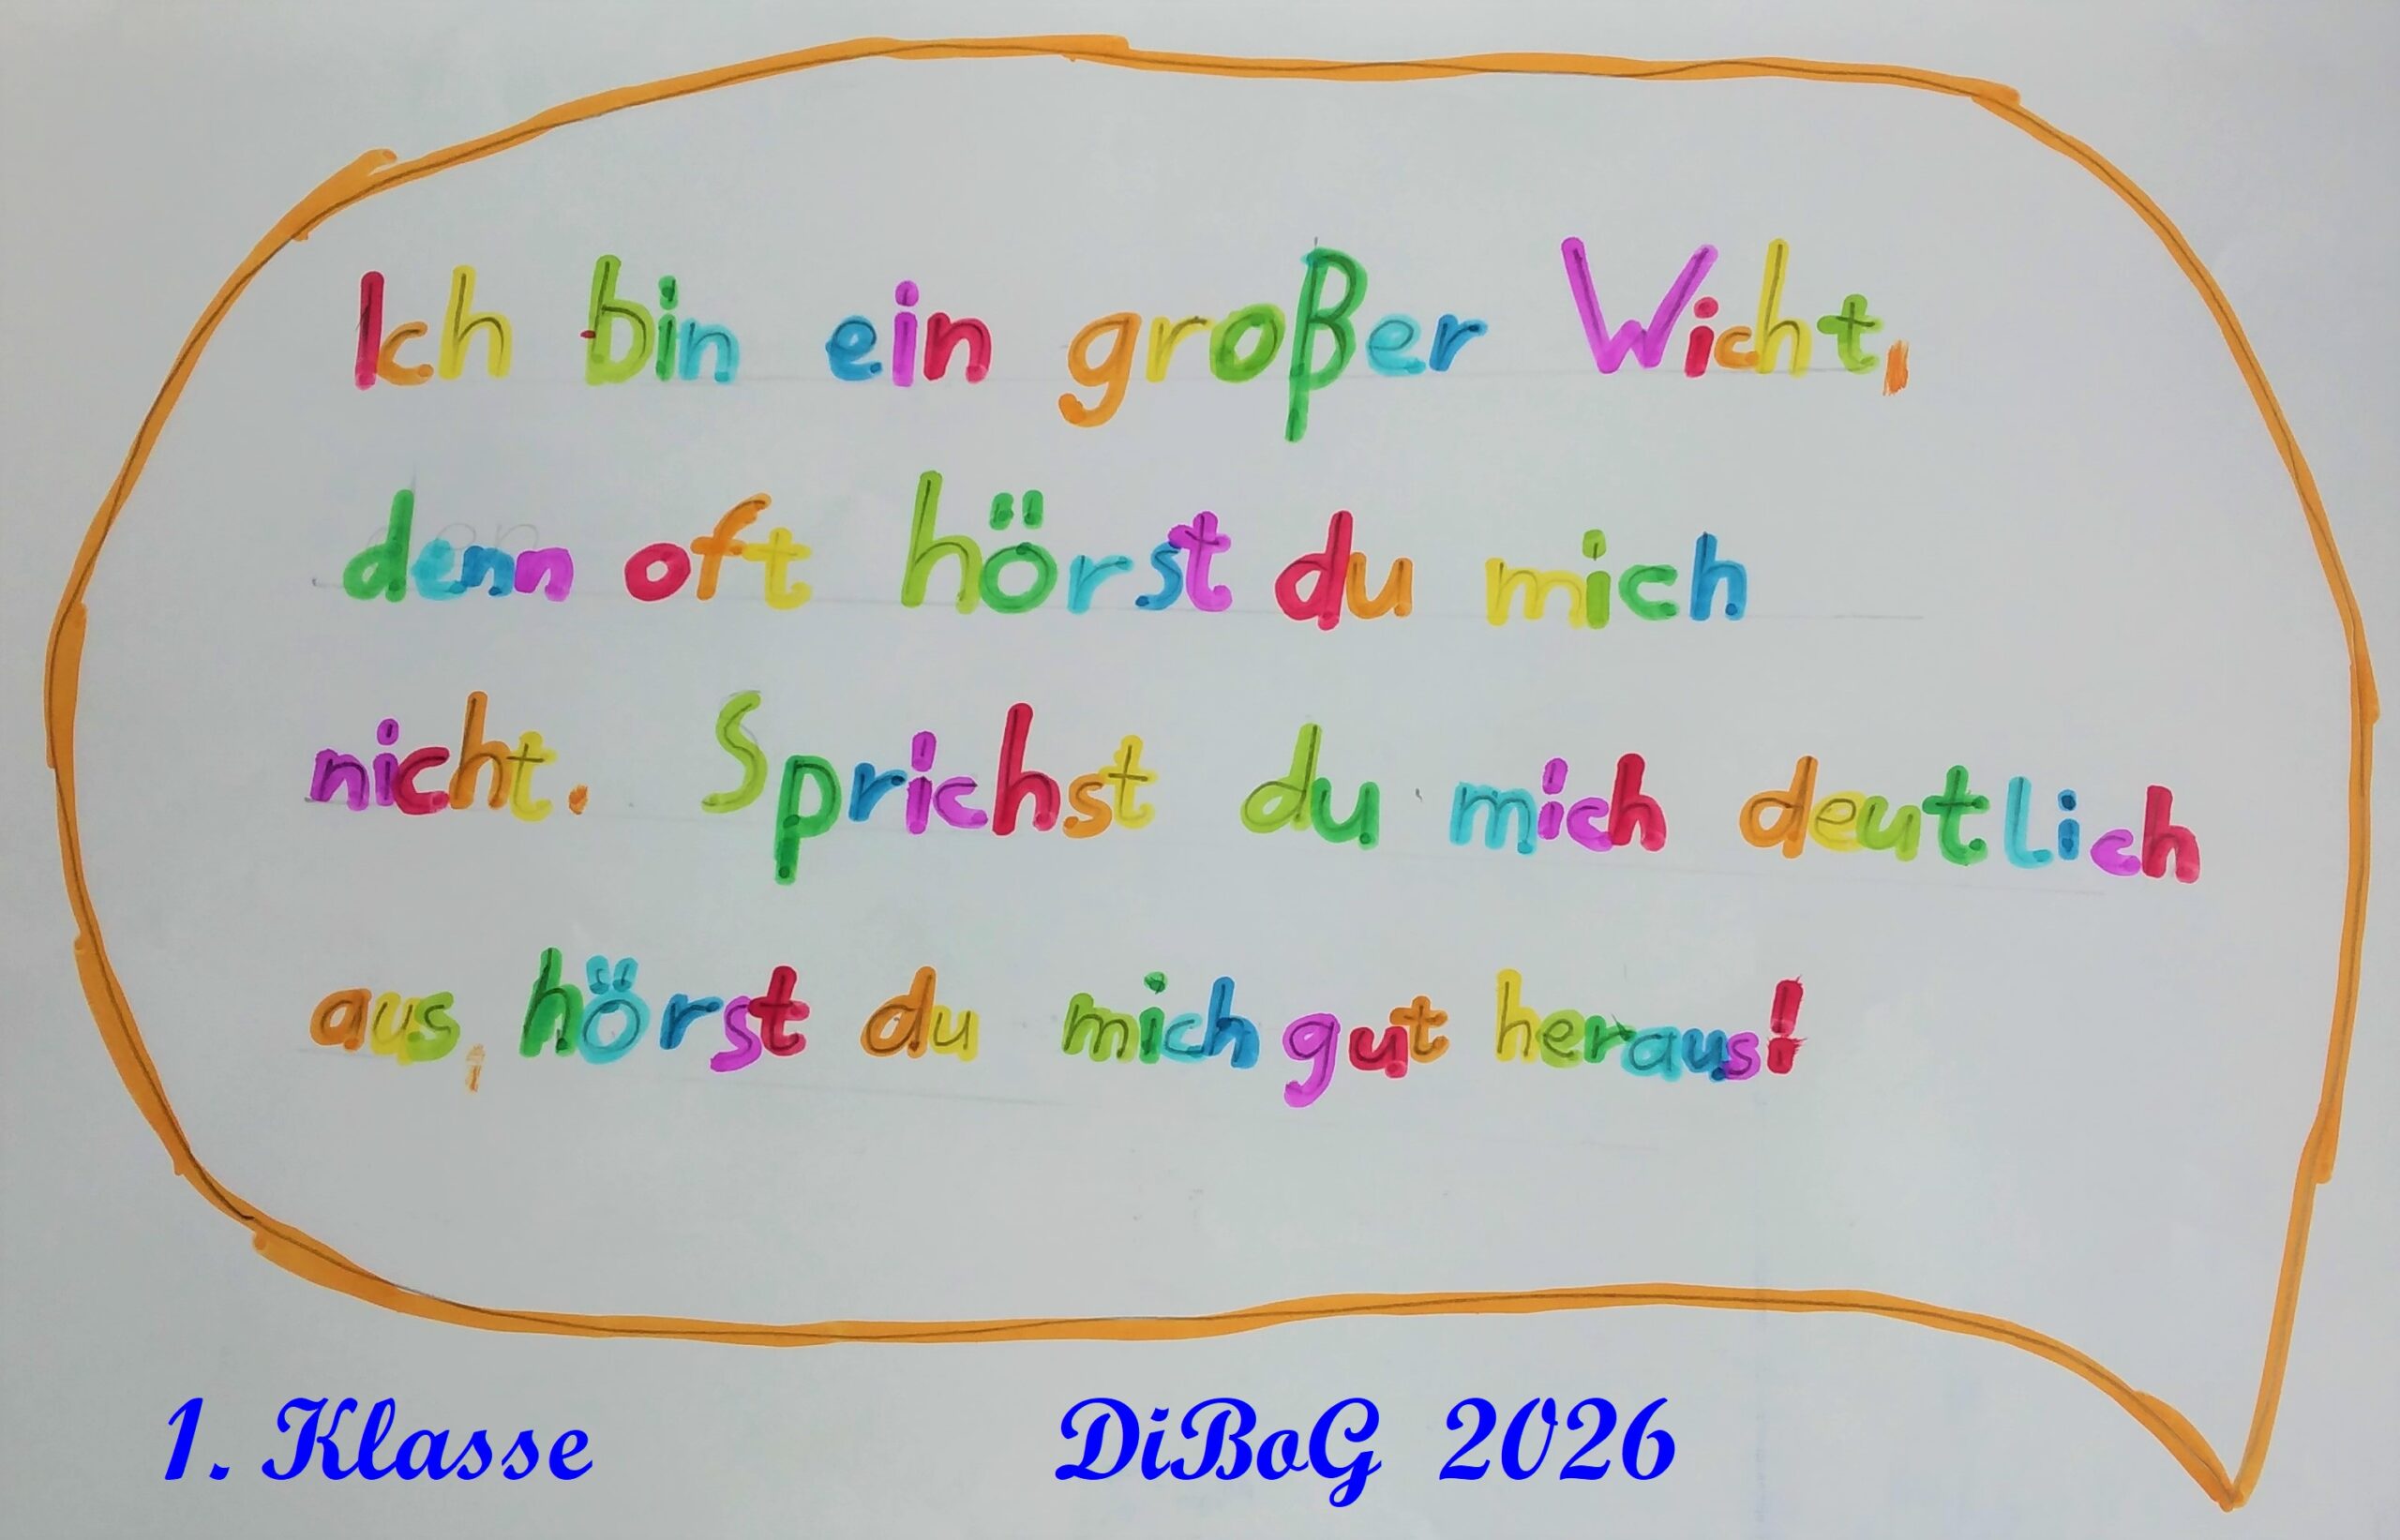 Ich bin ein großer Wicht,
denn oft hörst du mich
nicht. Sprichst du mich deutlich
aus, hörst du mich gut heraus!
1. Klasse DiBoG 2026